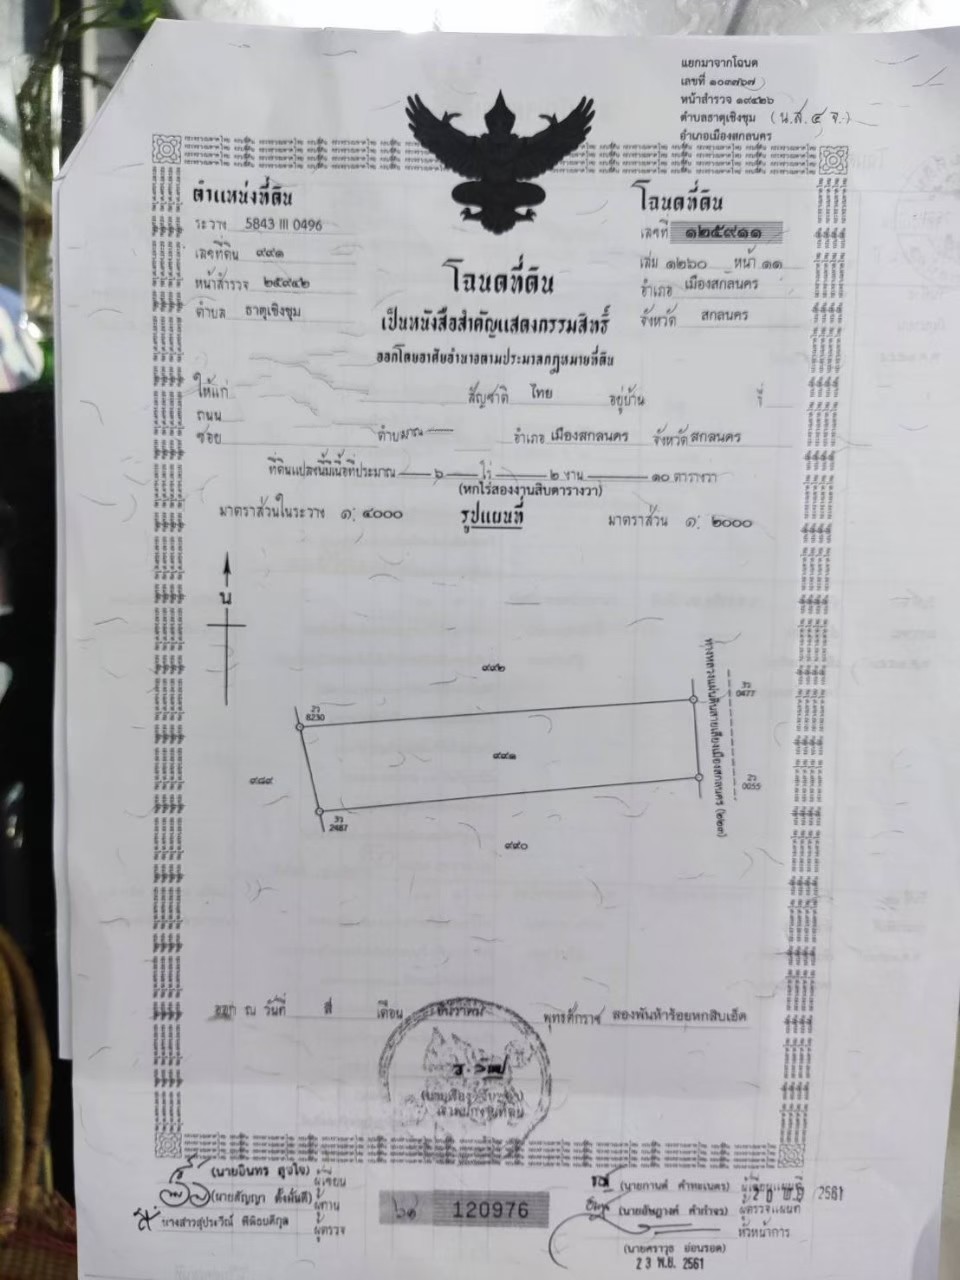 แยกมาจากโฉนด
เลขที่ ๑๐๓๗๖๗
หน้าสำรวจ ๑๙๔๒๖
ตำบลธาตุเชิงชุม (น.ส.๔ จ.)
อำเภอเมืองสกลนคร
ตำแหน่งที่ดิน
ระวาง 5843 III 0496
เลขที่ดิน ๙๙๑
หน้าสำรวจ ๒๕๙๔๒
ตำบล ธาตุเชิงชุม
โฉนดที่ดิน
เลขที่ ๑๒๕๙๑๑
เล่ม ๑๒๖๐ หน้า ๑๑
อำเภอ เมืองสกลนคร
จังหวัด สกลนคร
โฉนดที่ดิน
เป็นหนังสือสำคัญแสดงกรรมสิทธิ์
ออกโดยอาศัยอำนาจตามประมวลกฎหมายที่ดิน
ให้แก่ สัญชาติ ไทย อยู่บ้าน
ถนน
ซอย ตำบล อำเภอ เมืองสกลนคร จังหวัด สกลนคร
ที่ดินแปลงนี้มีเนื้อที่ประมาณ ๖ ไร่ ๒ งาน ๑๐ ตารางวา
(หกไร่สองงานสิบตารางวา)
มาตราส่วนในระวาง ๑: ๔๐๐๐ รูปแผนที่ มาตราส่วน ๑: ๒๐๐๐
น
๙๙๒
2ว
8230
3ว
0477
๙๙๑
ทางหลวงแผ่นดินสายเลี่ยงเมืองสกลนคร (๒๒๓)
๙๘๙
2ว
0055
3ว
2487
๙๙๐
ออก ณ วันที่ สี่ เดือน ธันวาคม พุทธศักราช สองพันห้าร้อยหกสิบเอ็ด
เจ้าพนักงานที่ดิน
(นายอินทร สุจใจ) ผู้เขียน
(นายสัญญา ตั้งมั่นดี) ผู้ทาน
นางสาวสุประวีณ์ พินิจบดีกุล ผู้ตรวจ
๖๑ 120976
(นายกานต์ คำทะเนตร) ผู้เขียนแผนที่
2561
(นายอัษฎางค์ คำกำจร) ผู้ตรวจแผนที่
หัวหน้าการ
(นายศราวุธ อ่อนรอด)
23 พ.ย. 2561